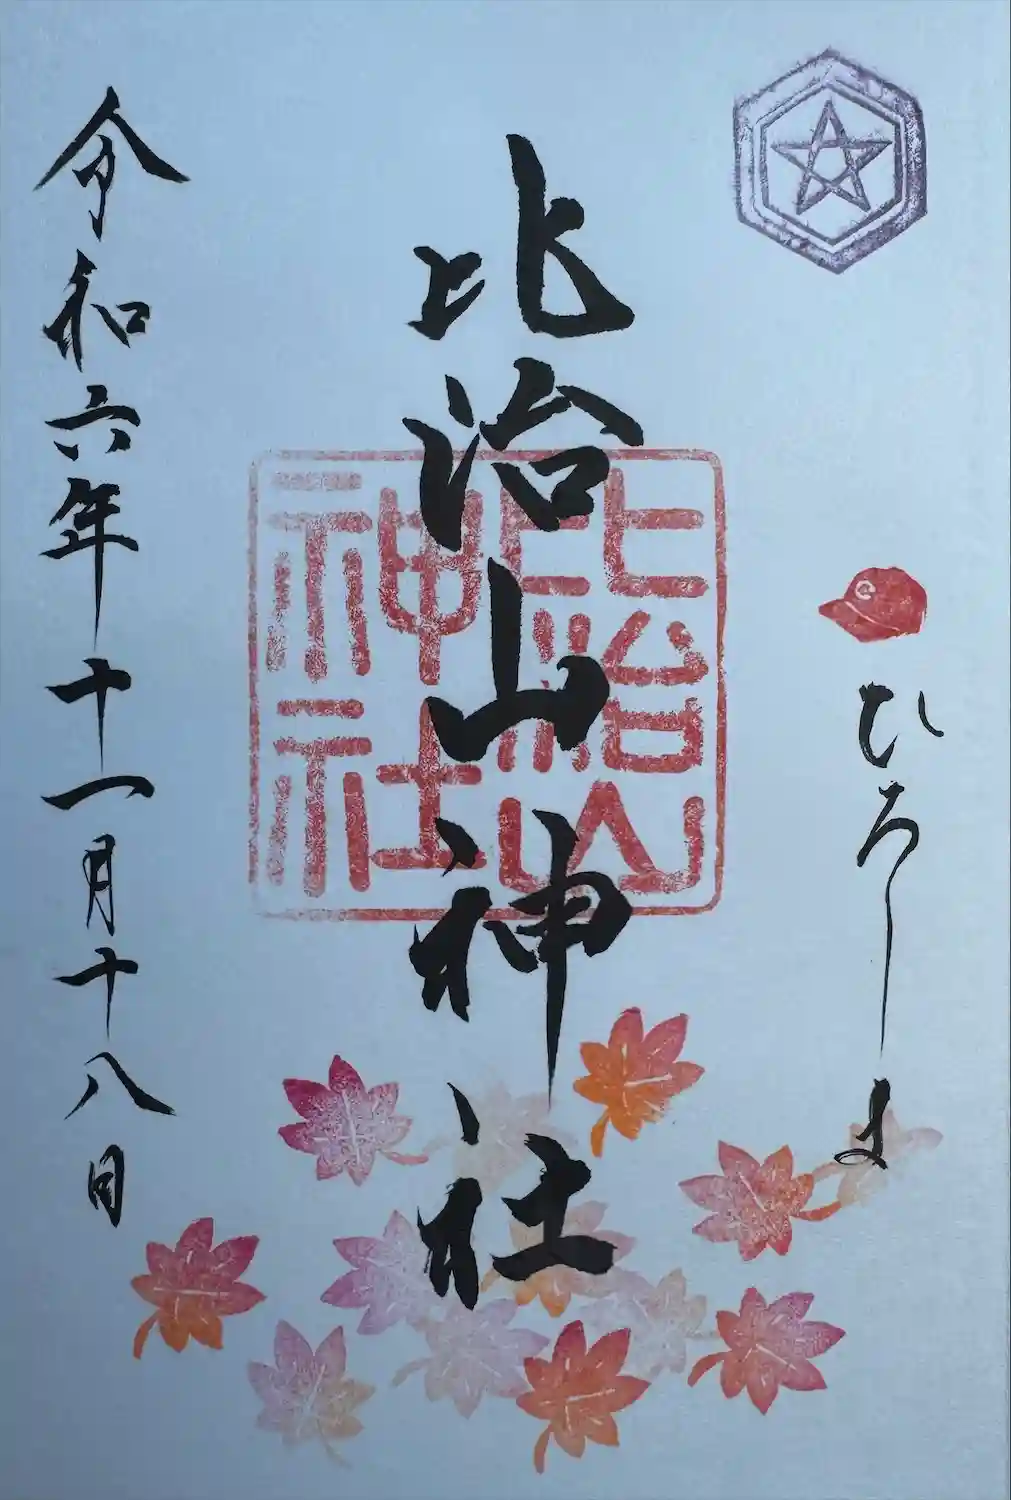 ひろしま
C
比治山神社
比治山神社
令和六年十一月十八日